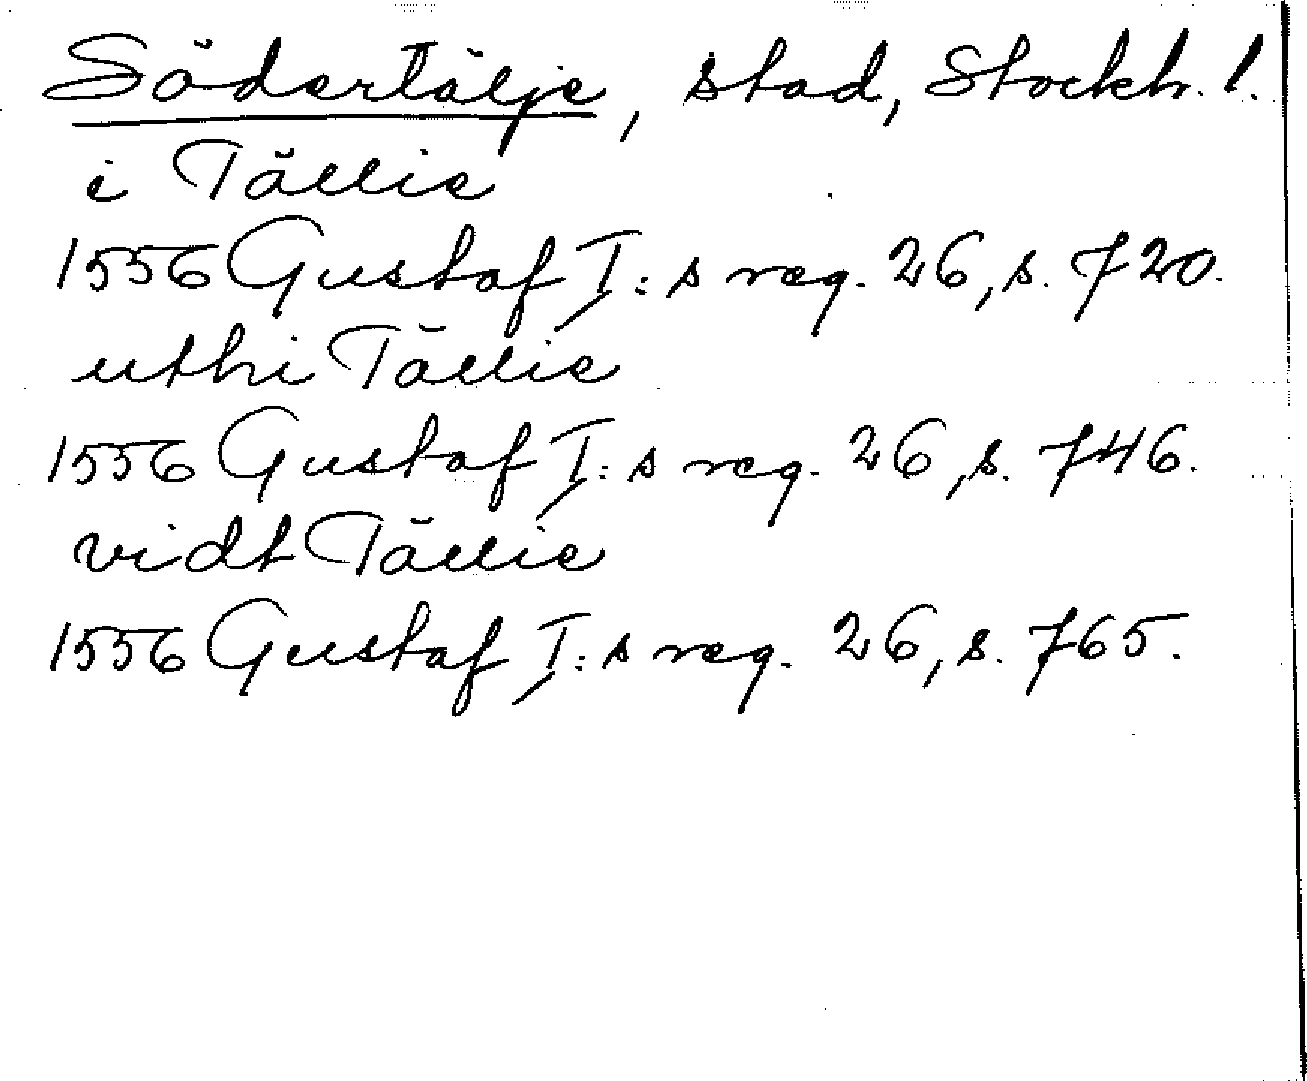 Södertälje, stad, Stockh. l.
i Tällie
1556 Gustaf I:s reg. 26, s. 720.
uthi Tällie
1556 Gustaf I:s reg. 26, s. 746.
vidt Tällie
1556 Gustaf I:s reg. 26, s. 765.